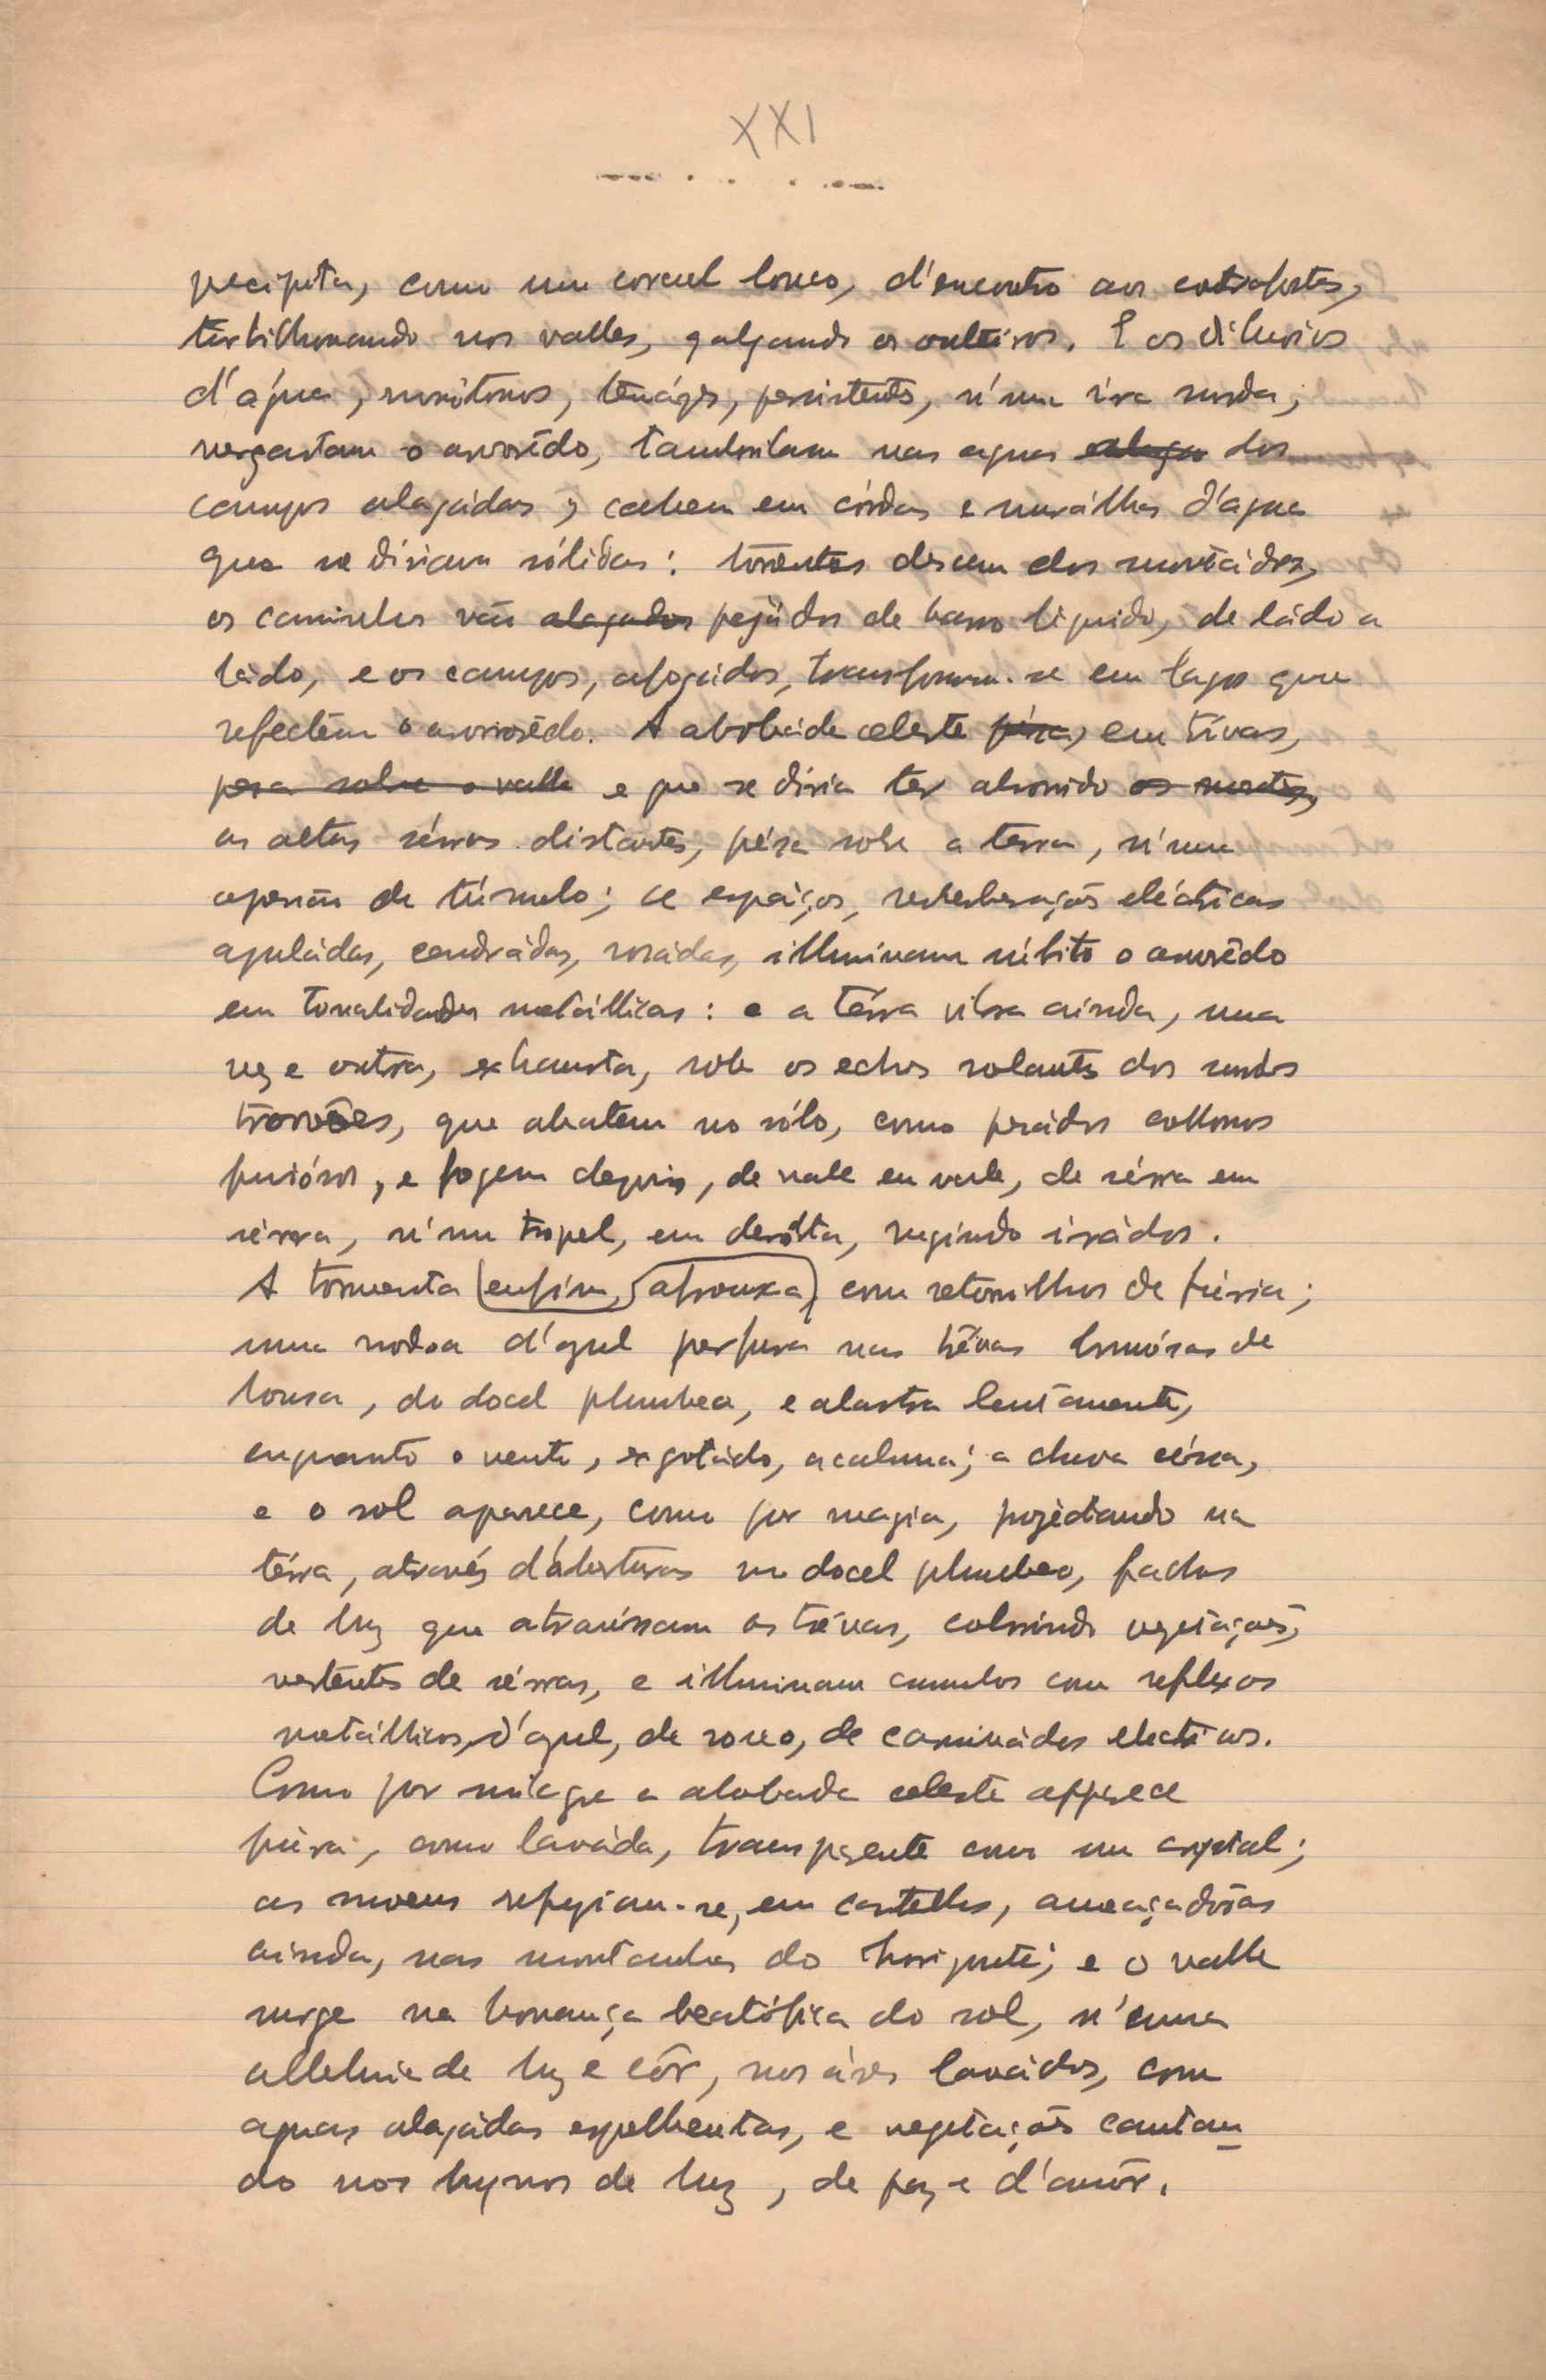 XXI
precipita, como um corcel louco, d'encontro aos cotrafortes,
turbilhonando nos valles, galgando os outeiros. E os diluvios
d'água, monótonos, tenázes, persistentes, n'um íra surda,
vergastam o arvorêdo, tamborilam nas aguas alagas dos
campos alagádos; cahem em córdas e murálhas d'água
que se diriam sólidas: torrentes descem dos montádos,
os caminhos vão alagados pejádos de barro liquido, de ládo a
ládo, e os campos, afogádos, transformam-se em lagos que
refectem o arvorêdo. A abobáda celeste péza, em trévas,
pesa sobre o valle e que se diria ter absorvido os montes,
as altas sérras distantes, péza sobre a terra, n'uma
opressão de túmulo; de espáços, reverberações eléctricas
azuládas, rosádas, illuminam súbito o arvorêdo
em tonalidades metállicas: e a térra vibra ainda, uma
vez e outra, exhausta, sob os echos rolantes dos surdos
trovões, que abatem no sólo, como pesádos collossos
furiósos, e fogem depois, de vale em vale, de sérra em
sérra, n'um tropel, em derróta, rugindo irádos.
A tormenta enfim, afrouxa, com retornilhos de fúria;
uma nodoa d'azul perfura nas trévas brumósas de
lousa, do docel plumbeo, e alastra lentamente,
emquanto o vento, exgotádo, acalma; a chuva céssa,
e o sol aparece, como por magia, projéctando na
térra, através d'abérturas no docel plumbeo, fachos
de luz que atravéssam as trévas, colorindo vegetações,
vertentes de sérras, e illuminam cumulos com reflexos
metállicos, d'azul, de roxo, de carminádos electricos.
Como por milagre a abobada celeste apparece
púra, como laváda, transparente como um crystal;
as nuvens refugiam-se, em castellos, ameaçadôras
ainda, nas montanhas do horizonte; e o valle
surge na bonança beatífica do sol, n'uma
alleluia de luz e côr, nos áres lavádos, com
aguas alagádas espelhentas, e vegetações cantan
do nos hymnos de luz, de paz e d'amôr.